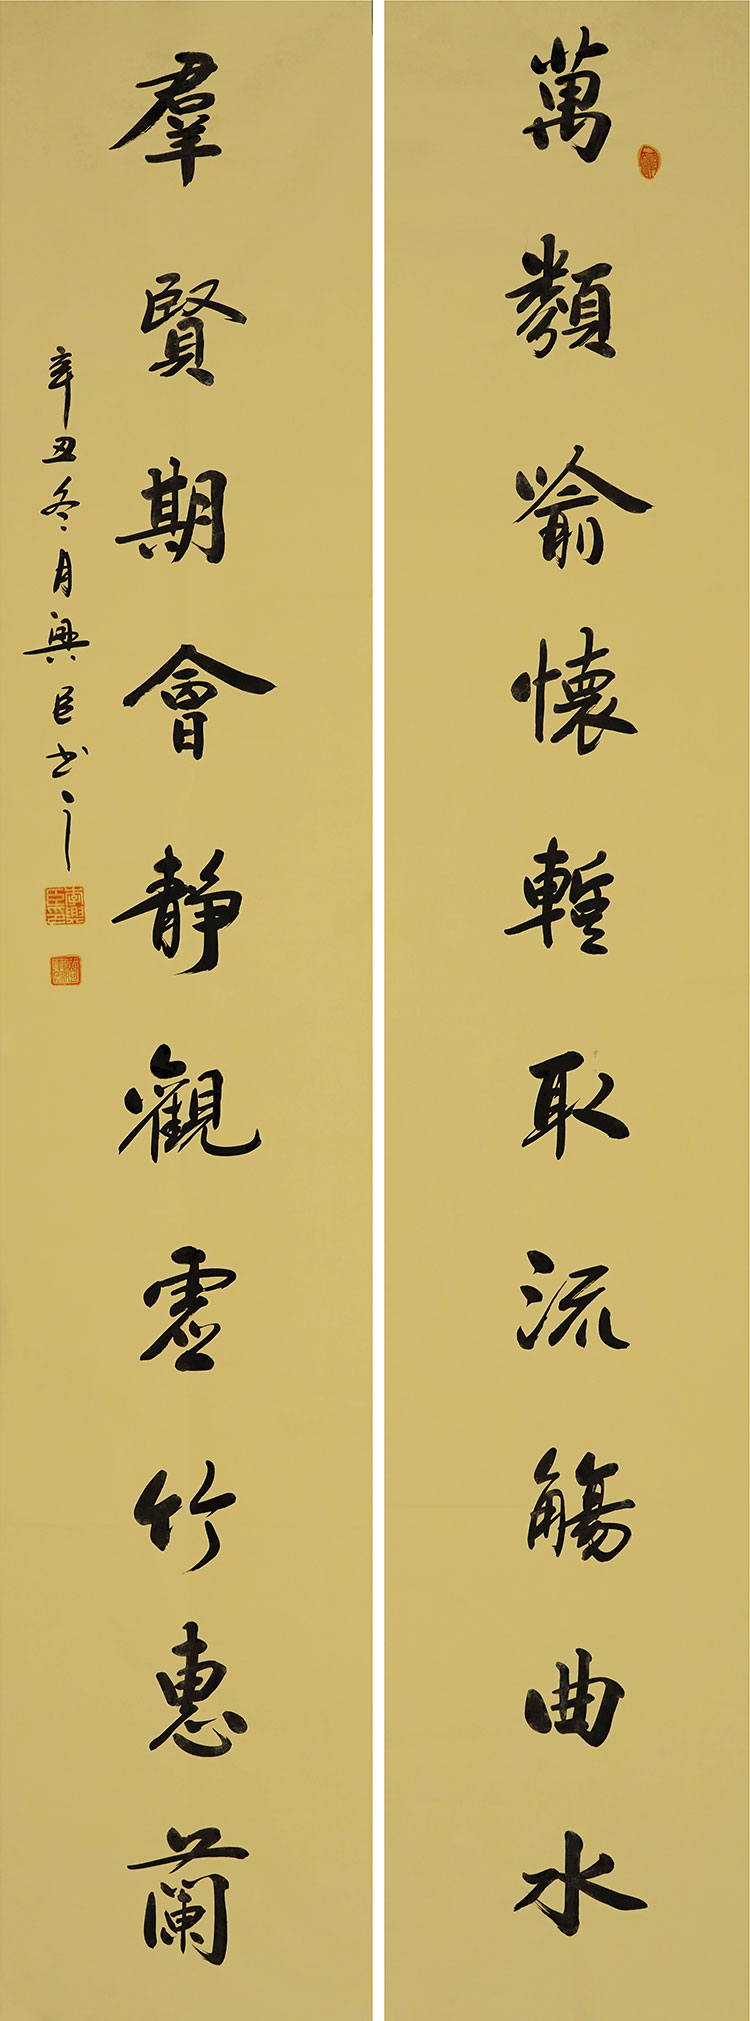 萬類喻懷暫取流觴曲水
羣賢期會靜觀虛竹惠蘭
辛丑冬月興臣书之